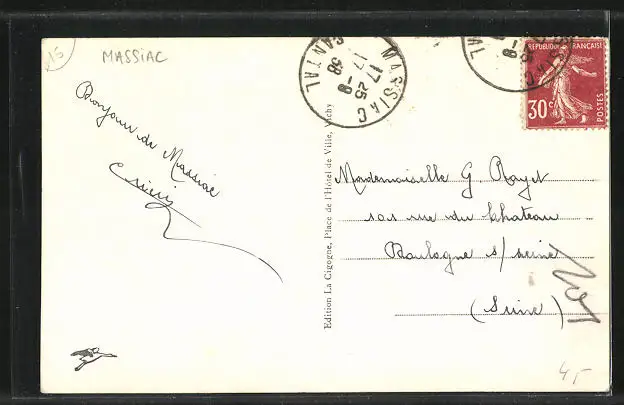 15
MASSIAC
Bonjour de Massiac
MARSSIAC
17 25
17 -8
38
CANTAL
REPUBLIQUE FRANÇAISE
30c
POSTES
Edition La Cigogne, Place de l'Hôtel de Ville, Vichy
Mademoiselle G. Rayet
101 rue du Chateau
Boulogne s/ seine
(Seine)
101
4,-